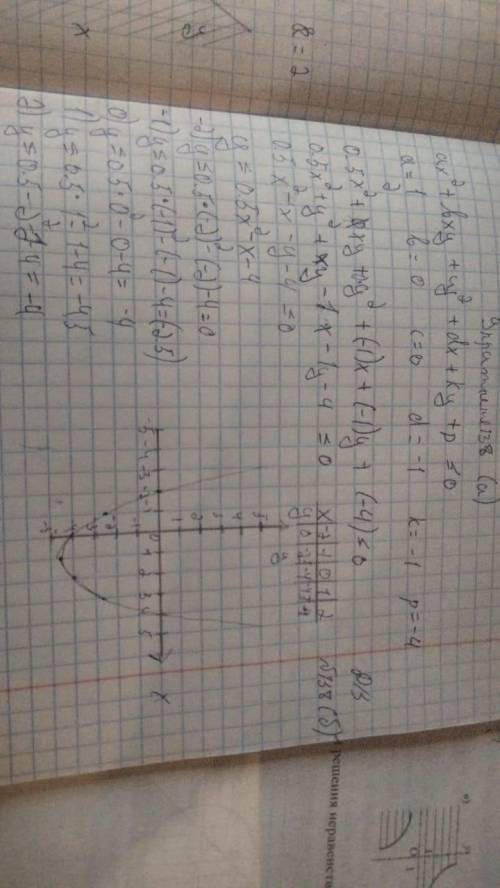 Упражнение 138 (а)
ax² + bxy + cy² + dx + ky + p ≤ 0
a = 1/2 b = 0 c = 0 d = -1 k = -1 p = -4
0.5x² + 0xy + 0y² + (-1)x + (-1)y + (-4) ≤ 0
0.5x² + y² + xy - 1x - 1y - 4 ≤ 0
0.5x² - x - y - 4 ≤ 0
y = 0.5x² - x - 4
-2) y ≤ 0.5·(-2)² - (-2) - 4 = 0
-1) y ≤ 0.5·(-1)² - (-1) - 4 = (-2,5)
0) y ≤ 0.5·0² - 0 - 4 = -4
1) y ≤ 0.5·1² - 1 - 4 = -4,5
2) y ≤ 0.5 - 2 - 4 = -4
x -2 -1 0 1 2
Д/З
№138 (б)
-5 -4 -3 -2 -1 0 1 2 3 4 5
x
y
1
2
3
4
5
-1
-2
-3
-4
-5
a = 2
y
x
решения неравенств
0
1